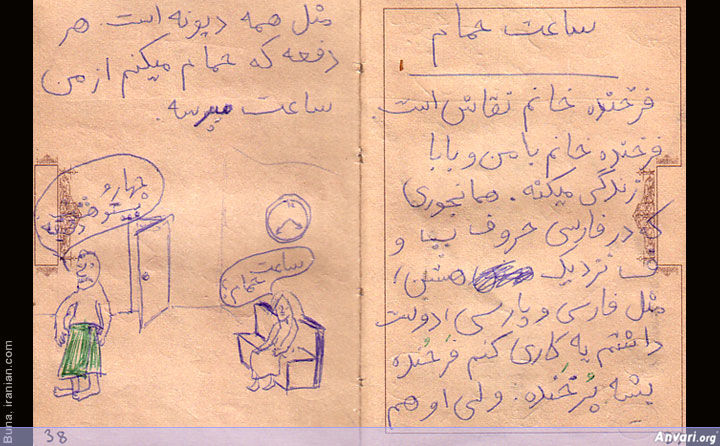 ساعت حمام
فرخنده خانم نقاش است.
فرخنده خانم با من و بابا
زندگی میکنه. همانجوری
که در فارسی حروف پ و
ف نزدیک هستن،
مثل فارسی و پارسی، دوست
داشتم یه کاری کنم فرخنده
بشه پرخنده. ولی او هم
مثل همه دیونه است. هر
دفعه که حمام میکنم از من
ساعت میپرسه.
چهار و
بیست و هفت دقیقه
ساعت
حمام؟
38
Buna, iranian.com
Anvari.org